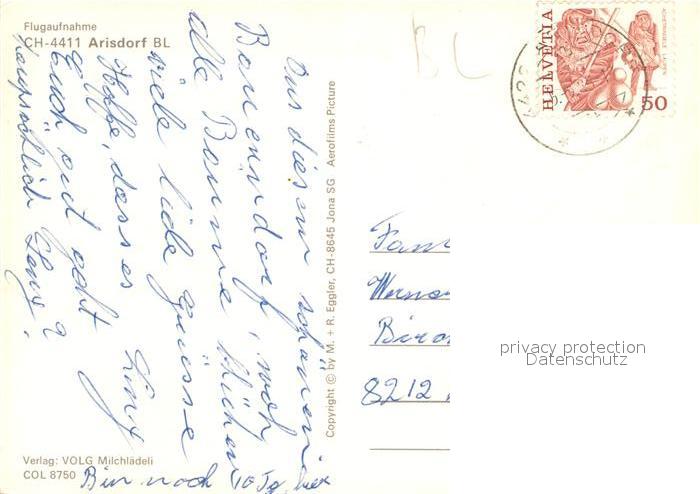 Flugaufnahme
CH-4411 Arisdorf BL
Aus diesem schönen
Bauerndorf, wo
alle Bäume blühen
viele liebe Grüsse
Hoffe, dass es
Euch gut geht
hauptsächlich
Bin noch 10 Tg. hier
Copyright © by M. + R. Eggler, CH-8645 Jona SG Aerofilms Picture
Verlag: VOLG Milchlädeli
COL 8750
BL
HELVETIA
50
Fam
Werne
8212
privacy protection
Datenschutz